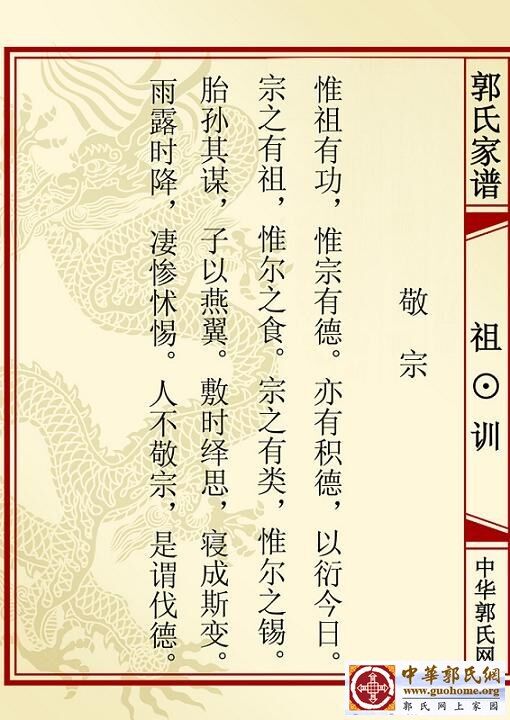 郭氏家谱
祖⊙训
中华郭氏网
敬宗
惟祖有功，惟宗有德。亦有积德，以衍今日。
宗之有祖，惟尔之食。宗之有类，惟尔之锡。
胎孙其谋，子以燕翼。敷时绎思，寝成斯变。
雨露时降，凄惨怵惕。人不敬宗，是谓伐德。
中華郭氏網
www.guohome.org
郭氏网上家园